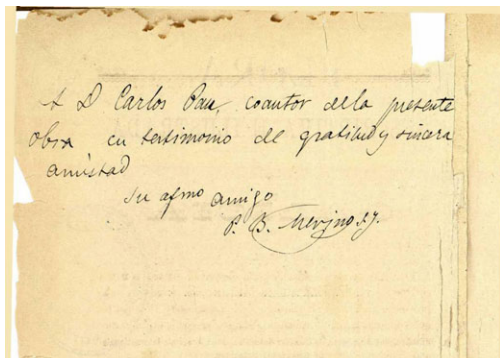 A D Carlos Pau, coautor de la presente
obra en testimonio de gratitud y sincera
amistad
Su afmo amigo
P. B. Merino S.J.